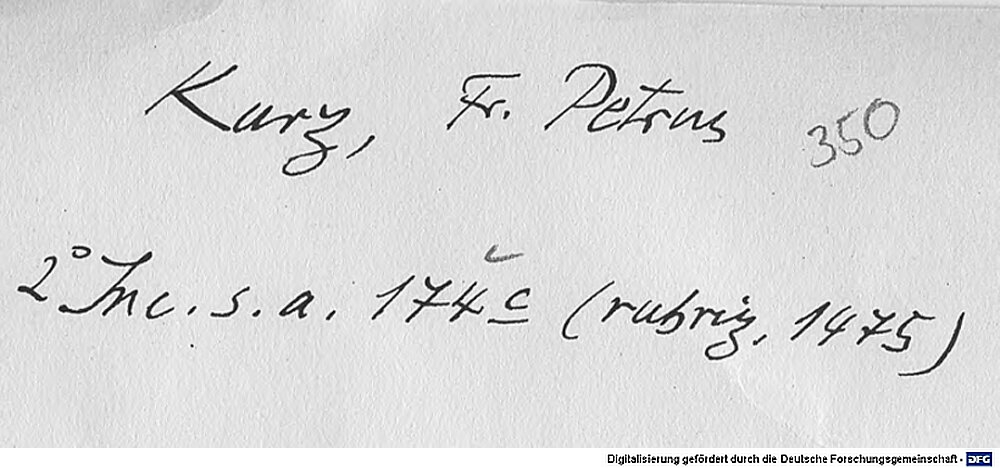 Kurz, Fr. Petrus 350
2° Inc. s. a. 174 c (rubriz. 1475)
Digitalisierung gefördert durch die Deutsche Forschungsgemeinschaft - DFG